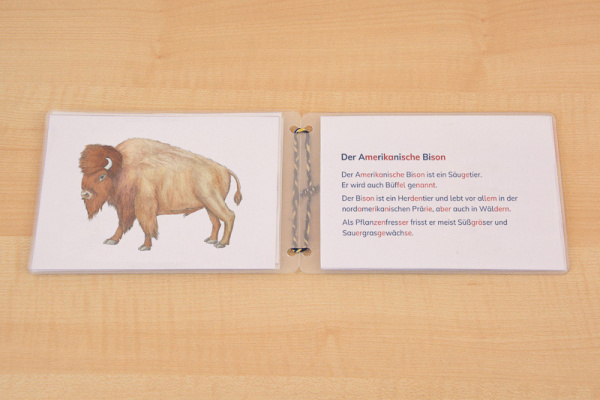 Der Amerikanische Bison
Der Amerikanische Bison ist ein Säugetier.
Er wird auch Büffel genannt.
Der Bison ist ein Herdentier und lebt vor allem in der
nordamerikanischen Prärie, aber auch in Wäldern.
Als Pflanzenfresser frisst er meist Süßgräser und
Sauergrasgewächse.